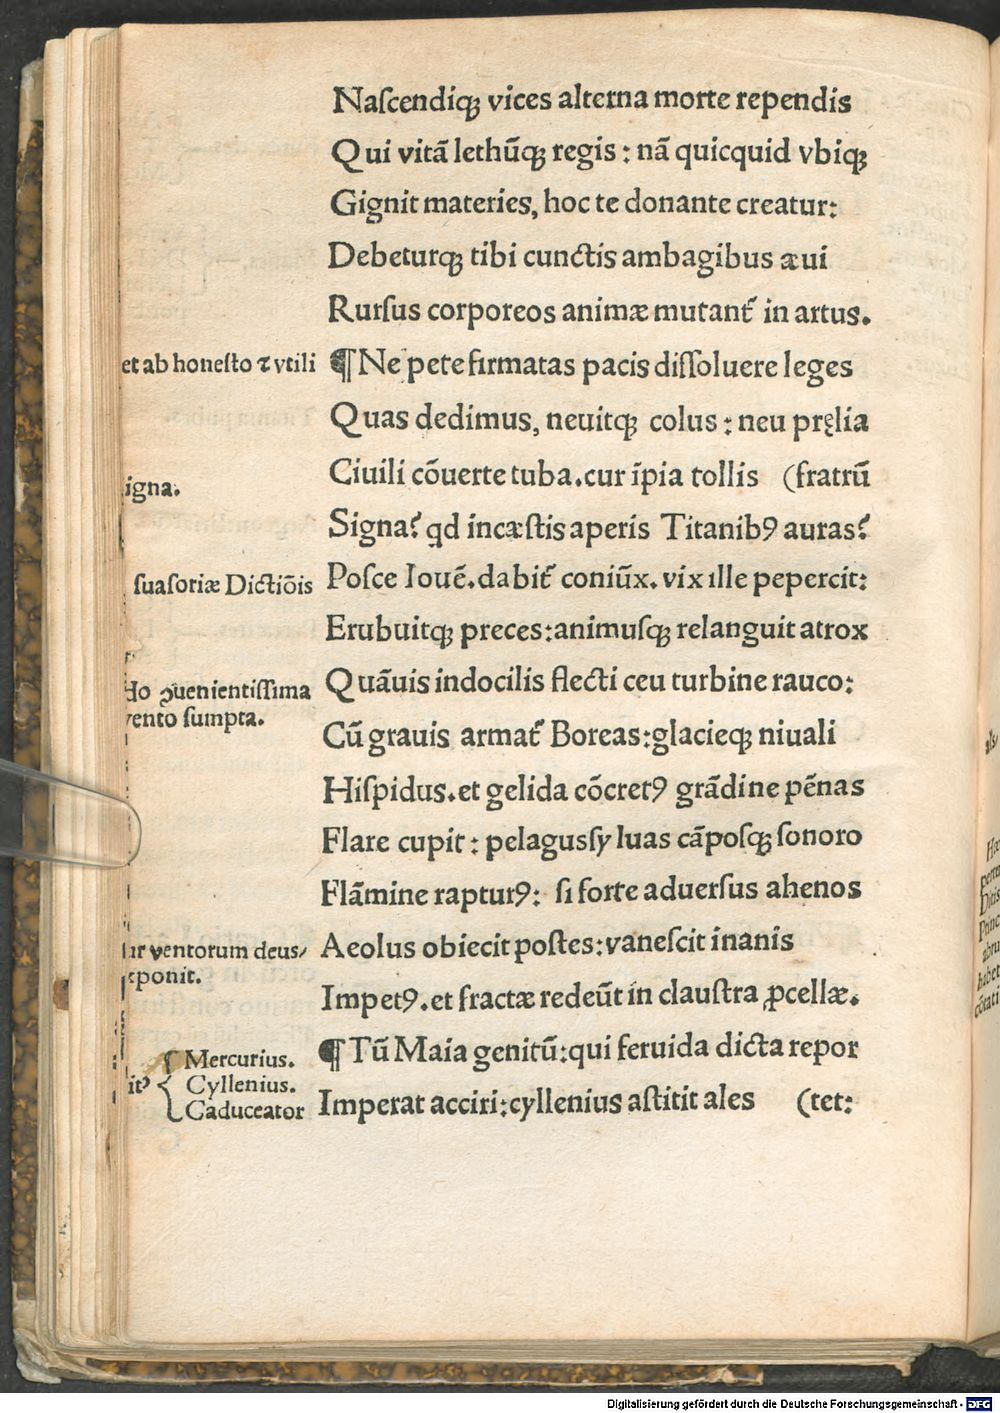 Naſcendiq; vices alterna morte rependis
Qui vitã lethũq; regis : nã quicquid vbiq;
Gignit materies, hoc te donante creatur:
Debeturq; tibi cunctis ambagibus æui
Rurſus corporeos animæ mutant᷑ in artus.
et ab honeſto ⁊ vtili
¶ Ne pete firmatas pacis diſſoluere leges
Quas dedimus, neuitq; colus : neu pręlia
Ciuili cõuerte tuba. cur ĩpia tollis (fratrũ
igna.
Signa? qd incæſtis aperis Titanibꝰ auras?
ſuaſoriæ Dictiõis
Poſce Iouẽ. dabit᷑ coniũx. vix ille pepercit:
Erubuitq; preces: animuſq; relanguit atrox
ꝯuenientiſſima
Quãuis indocilis flecti ceu turbine rauco:
vento ſumpta.
Cũ grauis armat᷑ Boreas: glacieq; niuali
Hiſpidus. et gelida cõcretꝰ grãdine pẽnas
Flare cupit : pelagus ſyluas cãpoſq; ſonoro
Flãmine rapturꝰ: ſi forte aduerſus ahenos
ventorum deus/
Aeolus obiecit poſtes: vaneſcit inanis
ponit.
Impetꝰ. et fractæ redeũt in clauſtra ꝓcellæ.
¶ Tũ Maia genitũ: qui feruida dicta repor
Mercurius.
Cyllenius.
Caduceator
Imperat acciri: cyllenius aſtitit ales (tet:
Digitalisierung gefördert durch die Deutsche Forschungsgemeinschaft - DFG